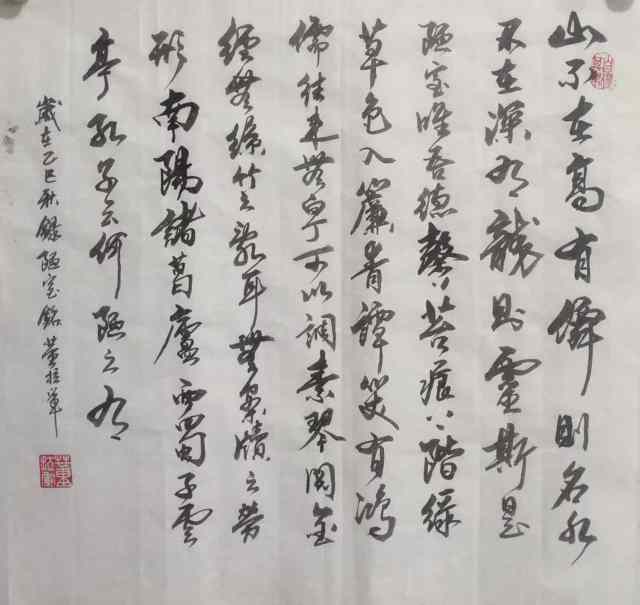 山不在高有僊則名水
不在深有龍則靈斯是
陋室唯吾德馨苔痕上階綠
草色入簾青譚笑有鴻
儒往来無白丁可以調素琴閱金
經無絲竹之亂耳無案牘之勞
形南陽諸葛廬西蜀子雲
亭孔子云何陋之有
歲在乙巳秋錄陋室銘